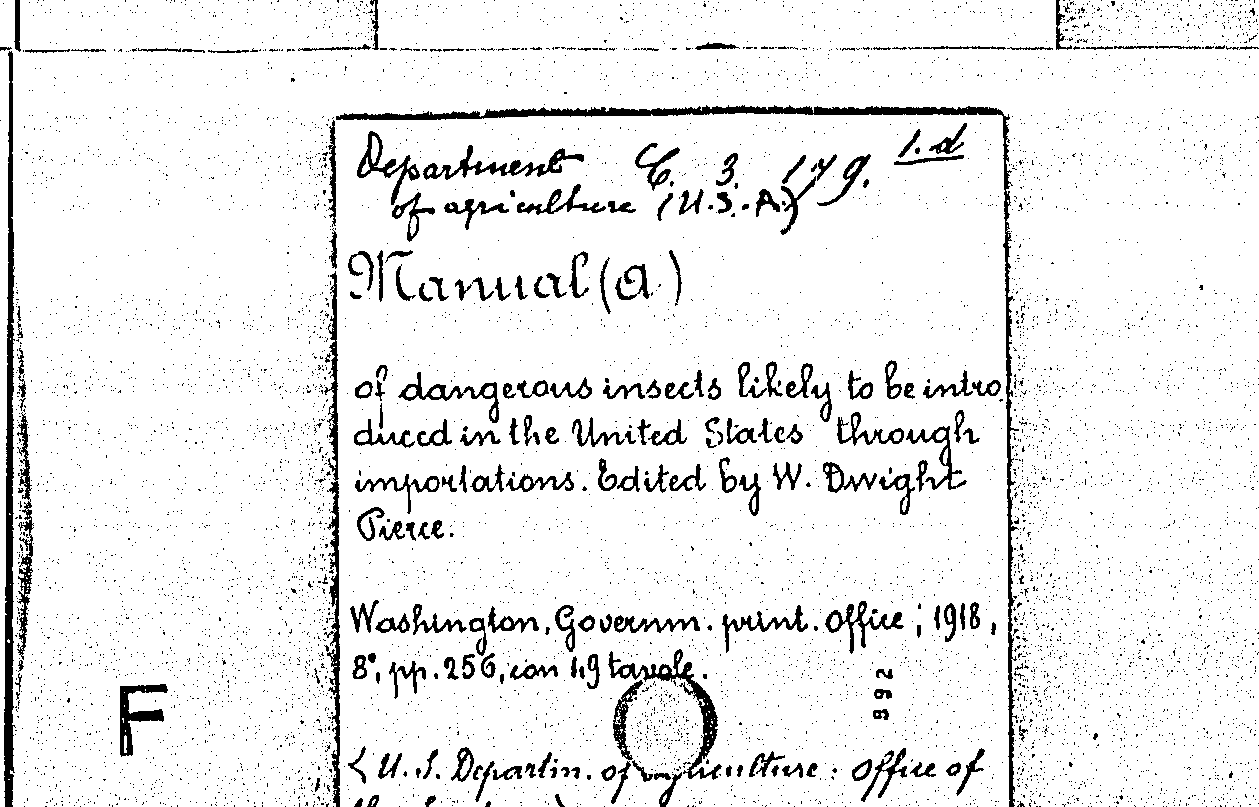 Department C. 3. 179. 1.d
of agriculture (U.S.A.)
Manual (a)
of dangerous insects likely to be intro
duced in the United States through
importations. Edited by W. Dwight
Pierce.
Washington, Governm. print. office; 1918,
8°, pp. 256, con 49 tavole.
992
F
(U.S. Departm. of agriculture: office of